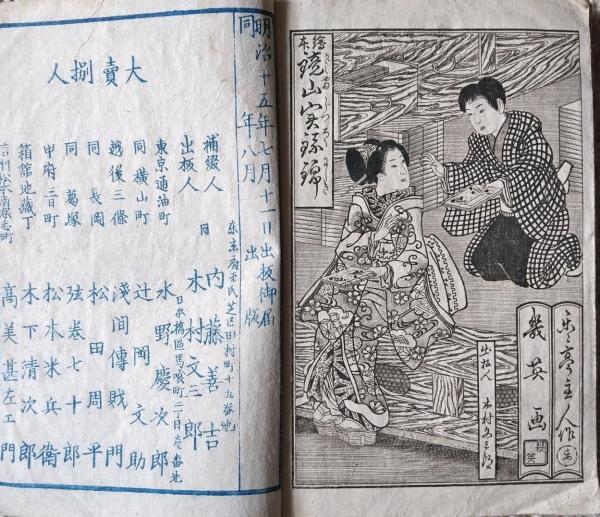 繪本
鏡山実録錦
楽亭主人作
幾英画
出板人
木村文三郎
明治十五年七月十一日出板御届
同年八月出版
大賣捌人
補綴人
東京府平民芝区田村町十五番地
内藤善吉
出板人
同日本橋區馬喰町二丁目
木村文三郎
東京通油町
水野慶次郎
同横山町
辻岡文助
越後三條
淺間傳賎門
同長岡
松田周平
同葛塚
弦巻七十郎
甲府二日町
松本米兵衛
箱館地藏丁
木下清次郎
信州松本南深志町
高美甚左エ門